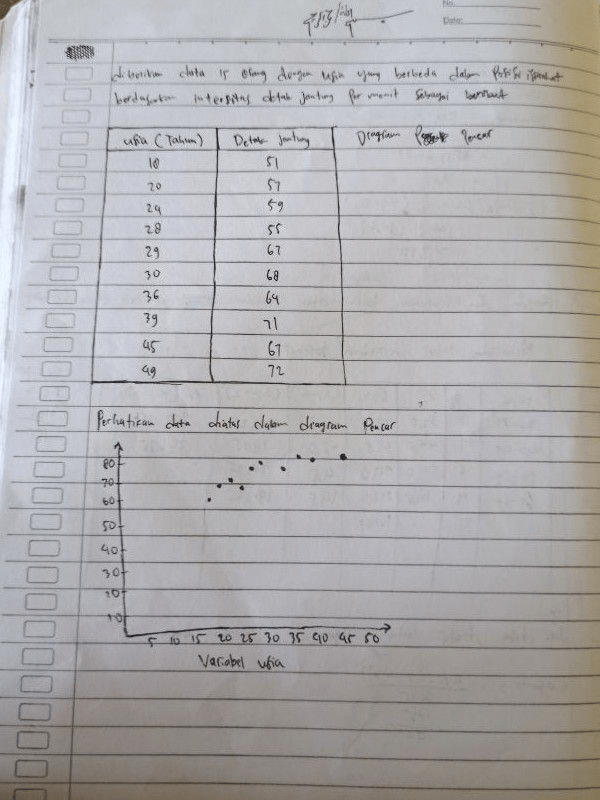 No.
Date:
diberikan data 15 orang dengan usia yang berbeda dalam Posisi istirahat
berdasarkan intensitas detak jantung Per menit sebagai berikut
usia (Tahun) Detak jantung Diagram Pencar
18 51
20 57
24 59
28 55
29 67
30 68
36 64
39 71
45 67
49 72
Perhatikan data diatas dalam diagram Pencar
80
70
60
50
40
30
20
10
5 10 15 20 25 30 35 40 45 50
Variabel usia